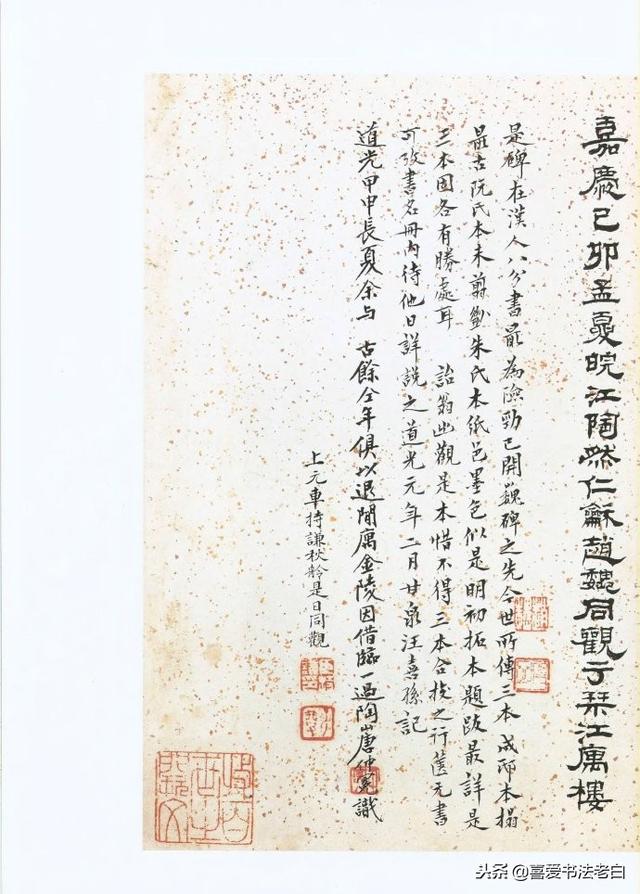 嘉慶己卯孟夏皖江陶然仁龢趙魏同觀于琹江寓樓
是碑在漢人八分書最為險勁已開魏碑之先今世所傳三本成邸本搨
最古阮氏本未剪劉朱氏本紙色墨色似是明初拓本題跋最詳是
三本固各有勝處耳 詒翁出觀是本惜不得三本合技之行篋元書
可攷書名冊內待他日詳說之道光元年二月甘泉汪喜孫記
道光甲申長夏余与 古餘仝年俱以退閒寓金陵因借臨一過陶山唐仲冕識
上元車持謙秋舲是日同觀
头条@喜爱书法老白